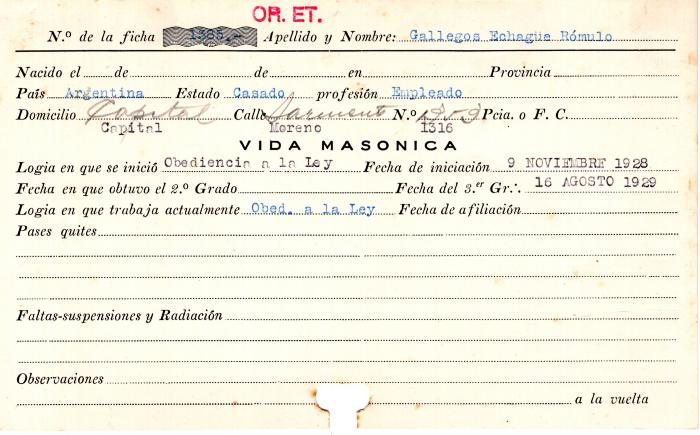 OR. ET.
N.º de la ficha 1385.- Apellido y Nombre: Gallegos Echagüe Rómulo
Nacido el de de en Provincia
País Argentina Estado Casado profesión Empleado
Domicilio Capital Calle Sarmiento N.º 1303 Pcia. o F. C.
Capital Moreno 1316
VIDA MASONICA
Logia en que se inició Obediencia a la Ley Fecha de iniciación 9 NOVIEMBRE 1928
Fecha en que obtuvo el 2.º Grado Fecha del 3.er Gr.·. 16 AGOSTO 1929
Logia en que trabaja actualmente Obed. a la Ley Fecha de afiliación
Pases quites
Faltas-suspensiones y Radiación
Observaciones
a la vuelta